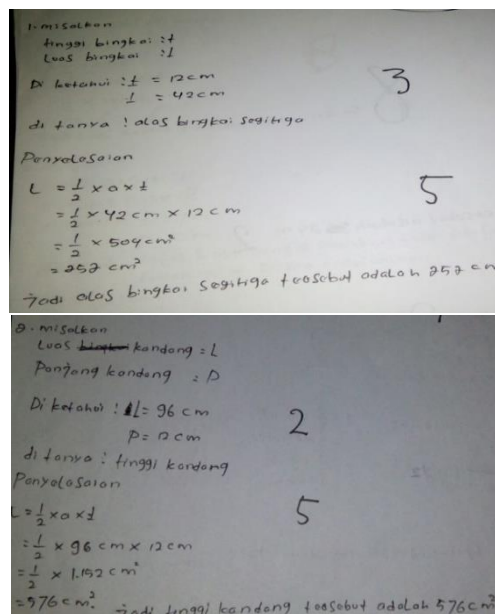 1. misalkan
tinggi bingkai : t
Luas bingkai : l
Di ketahui : t = 12 cm
l = 42 cm
3
di tanya : alas bingkai segitiga
Penyelesaian
L = 1/2 x a x t
5
= 1/2 x 42 cm x 12 cm
= 1/2 x 504 cm²
= 252 cm²
Jadi alas bingkai segitiga tersebut adalah 252 cm
2. misalkan
Luas kandang = L
Panjang kandang = P
Di ketahui : L = 96 cm
P = 12 cm
2
di tanya : tinggi kandang
Penyelesaian
L = 1/2 x a x t
5
= 1/2 x 96 cm x 12 cm
= 1/2 x 1.152 cm²
= 576 cm². Jadi tinggi kandang tersebut adalah 576 cm²